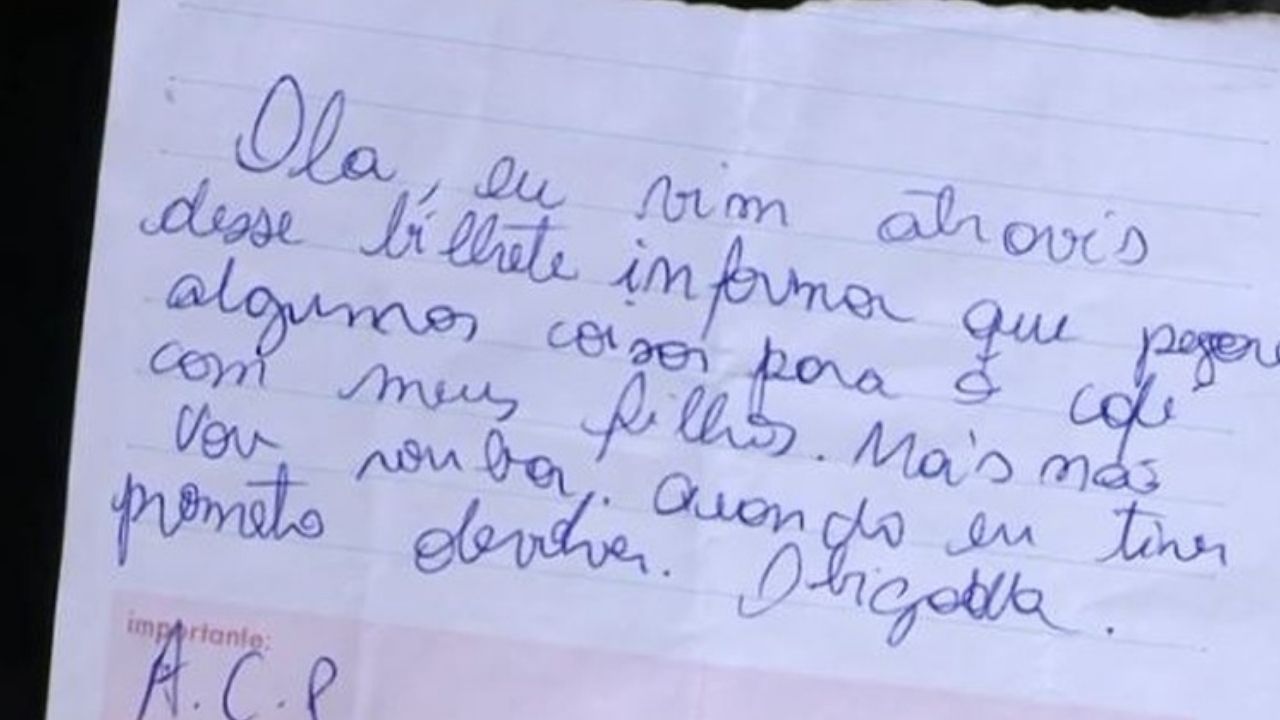 Ola, eu vim atravis
desse bilhete informar que pegere
algumas coisas para o cafe
com meus filhos. Mais nao
vou rouba,. Quando eu tiver
prometo devolver. Obigadda.
importante:
A.C.P